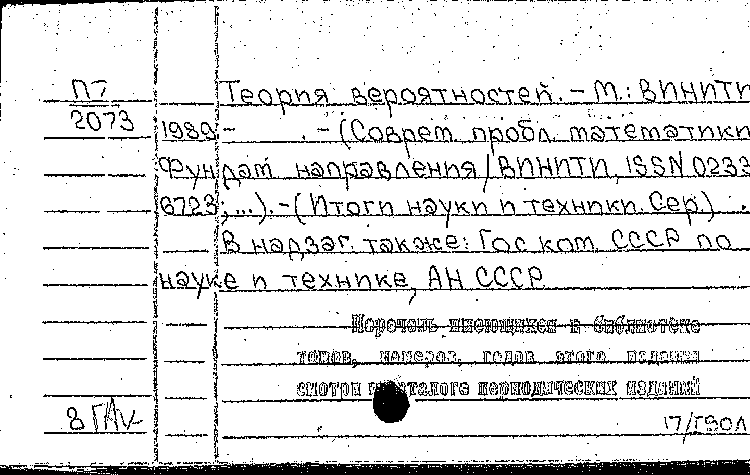 П7
2073
Теория вероятностей. – М.: ВИНИТИ
1989 – . – (Соврем. пробл. математики
Фундам. направления / ВИНИТИ, ISSN 0233
6723; ...). – (Итоги науки и техники. Сер.) .
В надзаг. также: Гос. ком. СССР по
науке и технике, АН СССР
Перечень имеющихся в библиотеке
томов, номеров, годов этого издания
смотри каталоге периодических изданий
8